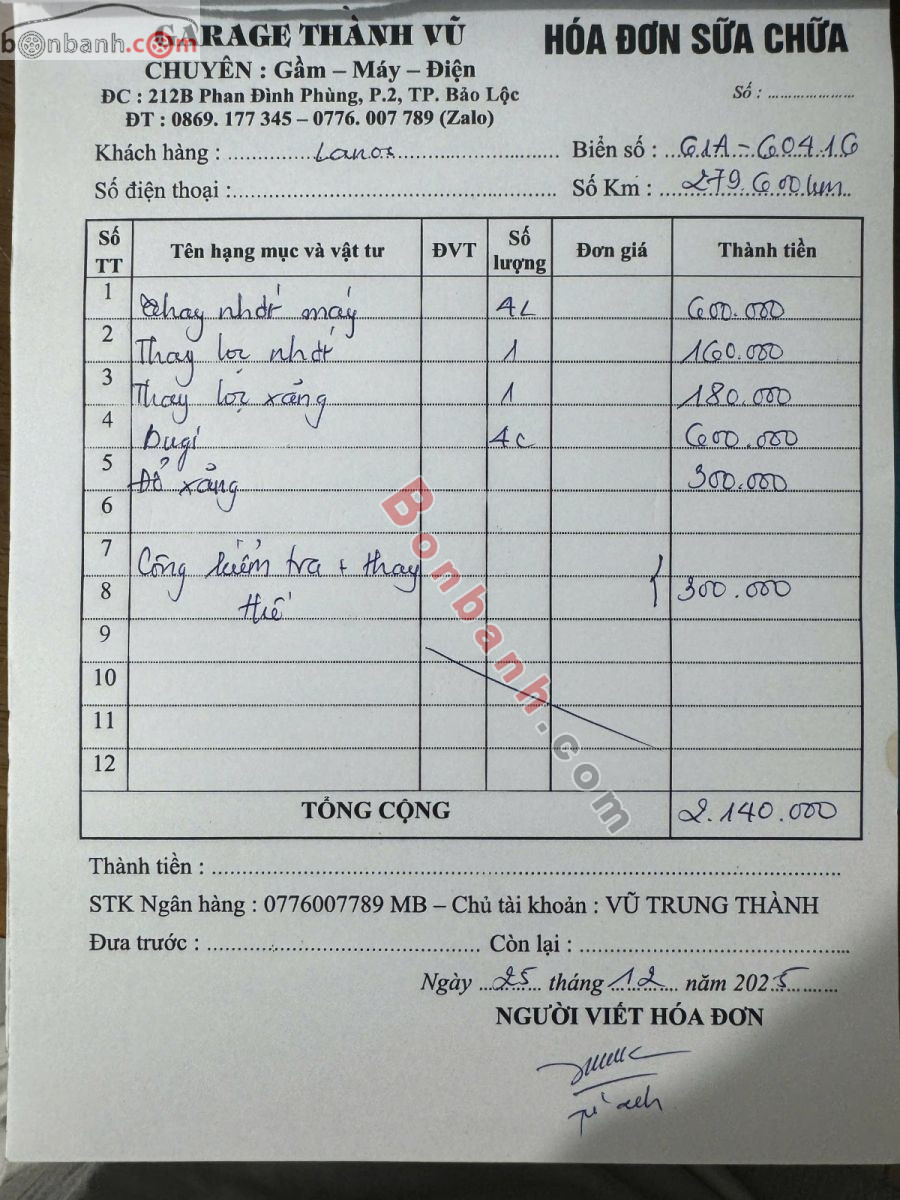 bonbanh.com
GARAGE THÀNH VŨ
HÓA ĐƠN SỮA CHỮA
CHUYÊN : Gầm – Máy – Điện
ĐC : 212B Phan Đình Phùng, P.2, TP. Bảo Lộc
Số : ....................
ĐT : 0869. 177 345 – 0776. 007 789 (Zalo)
Khách hàng : Lanos Biển số : 61A - 604.16
Số điện thoại : Số Km : 279.600km
Số TT Tên hạng mục và vật tư ĐVT Số lượng Đơn giá Thành tiền
1 Thay nhớt máy 4L 600.000
2 Thay lọc nhớt 1 160.000
3 Thay lọc xăng 1 180.000
4 Bugi 4c 600.000
5 Đổ xăng 300.000
6
7 Công kiểm tra + thay
8 thế 300.000
9
10
11
12
Bonbanh.com
TỔNG CỘNG 2.140.000
Thành tiền :
STK Ngân hàng : 0776007789 MB – Chủ tài khoản : VŨ TRUNG THÀNH
Đưa trước : Còn lại :
Ngày 25 tháng 12 năm 2025
NGƯỜI VIẾT HÓA ĐƠN